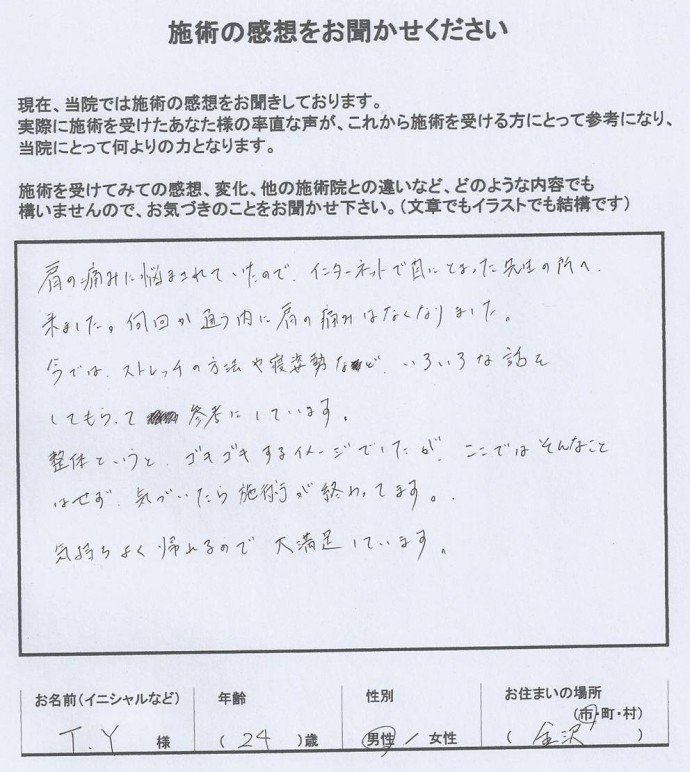 施術の感想をお聞かせください
現在、当院では施術の感想をお聞きしております。
実際に施術を受けたあなた様の率直な声が、これから施術を受ける方にとって参考になり、
当院にとって何よりの力となります。
施術を受けてみての感想、変化、他の施術院との違いなど、どのような内容でも
構いませんので、お気づきのことをお聞かせ下さい。(文章でもイラストでも結構です)
肩の痛みに悩まされていたので、インターネットで目にとまった先生の所へ
来ました。何回か通う内に肩の痛みはなくなりました。
今では、ストレッチの方法や寝姿勢など、いろいろな話を
してもらって参考にしています。
整体というと、ゴキゴキするイメージでしたが、ここではそんなこと
はせず、気づいたら施術が終わってます。
気持ちよく帰れるので大満足しています。
お名前(イニシャルなど) 年齢 性別 お住まいの場所
(市・町・村)
T.Y 様 (24)歳 男性 / 女性 (金沢)